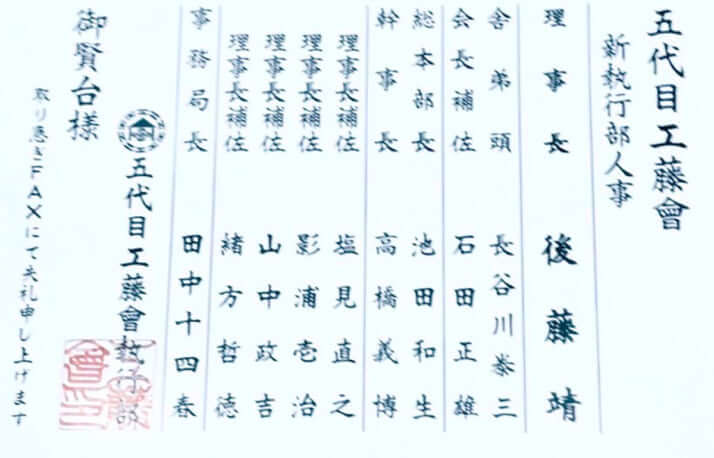 五代目工藤會
新執行部人事
理事長 後藤靖
舎弟頭 長谷川泰三
会長補佐 石田正雄
総本部長 池田和生
幹事長 高橋義博
理事長補佐 塩見直之
理事長補佐 影浦壱治
理事長補佐 山中政吉
理事長補佐 緒方哲徳
事務局長 田中十四春
五代目工藤會執行部
御賢台様
取り急ぎFAXにて失礼申し上げます